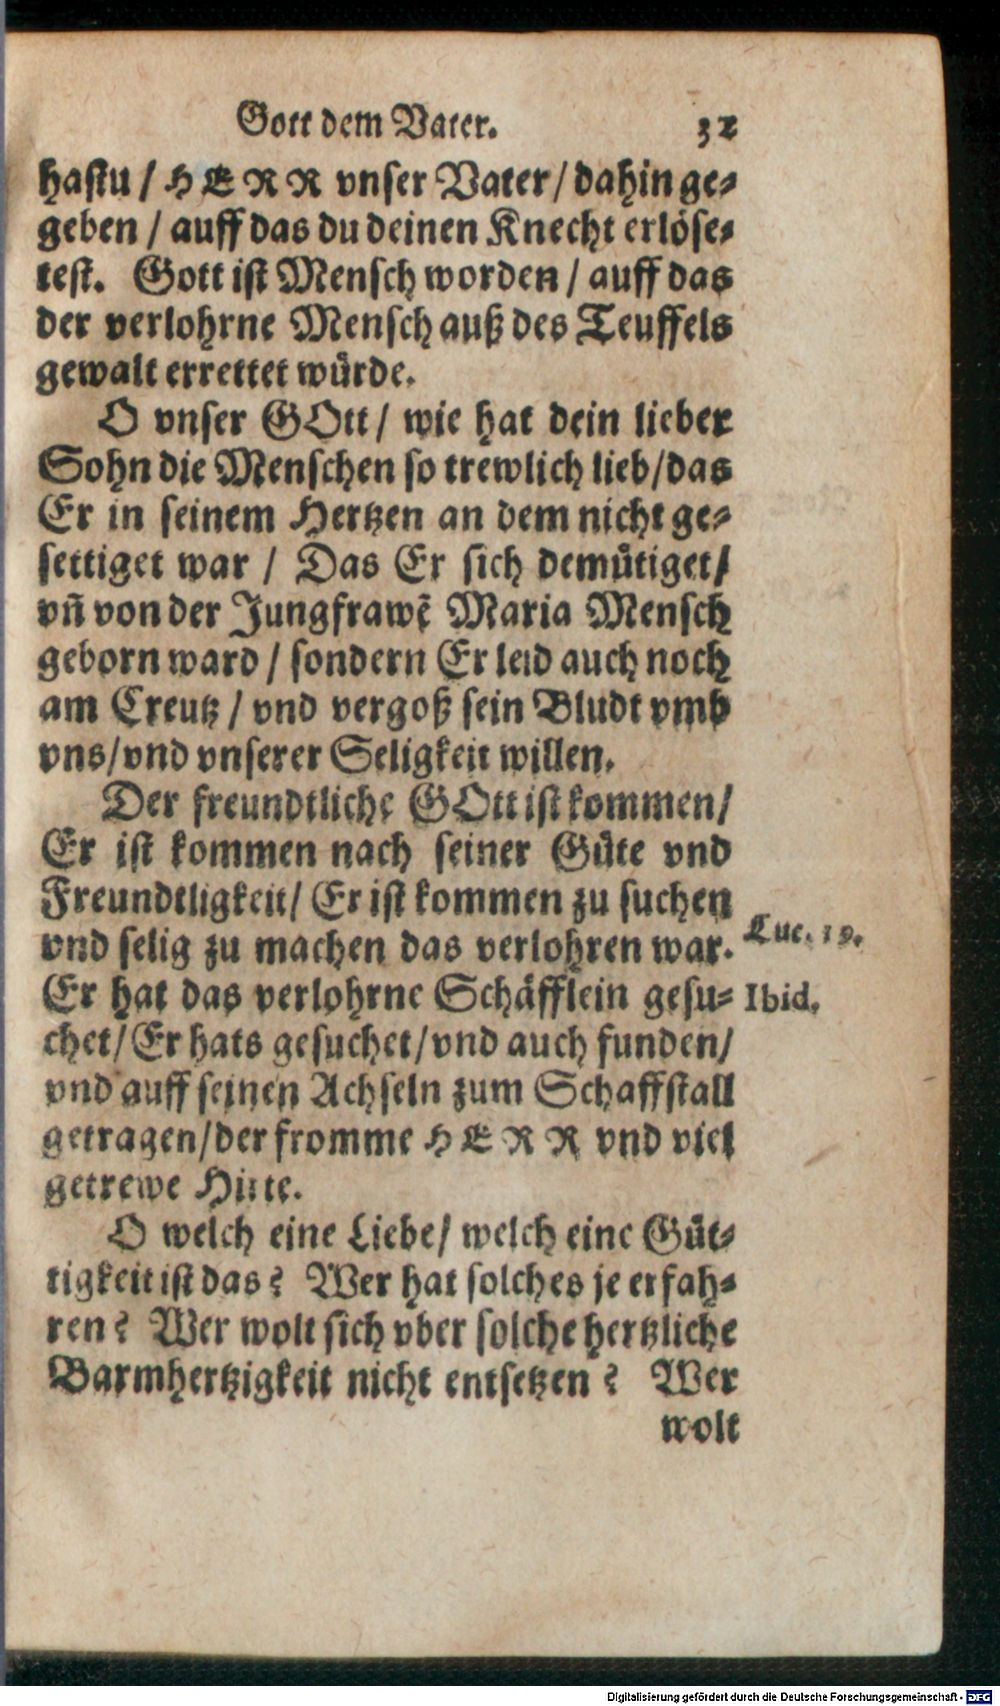 Gott dem Vater. 32
hastu / HERR vnser Vater / dahin ge⸗
geben / auff das du deinen Knecht erlöse⸗
test. Gott ist Mensch worden / auff das
der verlohrne Mensch auß des Teuffels
gewalt errettet würde.
O vnser GOtt / wie hat dein lieber
Sohn die Menschen so trewlich lieb / das
Er in seinem Hertzen an dem nicht ge⸗
settiget war / Das Er sich demütiget /
vñ von der Jungfrawẽ Maria Mensch
geborn ward / sondern Er leid auch noch
am Creutz / vnd vergoß sein Bludt vmb
vns / vnd vnserer Seligkeit willen.
Der freundtliche GOtt ist kommen /
Er ist kommen nach seiner Güte vnd
Freundtligkeit / Er ist kommen zu suchen
vnd selig zu machen das verlohren war. Luc. 19.
Er hat das verlohrne Schäfflein gesu⸗ Ibid.
chet / Er hats gesuchet / vnd auch funden /
vnd auff seinen Achseln zum Schaffstall
getragen / der fromme HERR vnd viel
getrewe Hirte.
O welch eine Liebe / welch eine Güt⸗
tigkeit ist das? Wer hat solches je erfah⸗
ren? Wer wolt sich vber solche hertzliche
Barmhertzigkeit nicht entsetzen? Wer
wolt
Digitalisierung gefördert durch die Deutsche Forschungsgemeinschaft - DFG